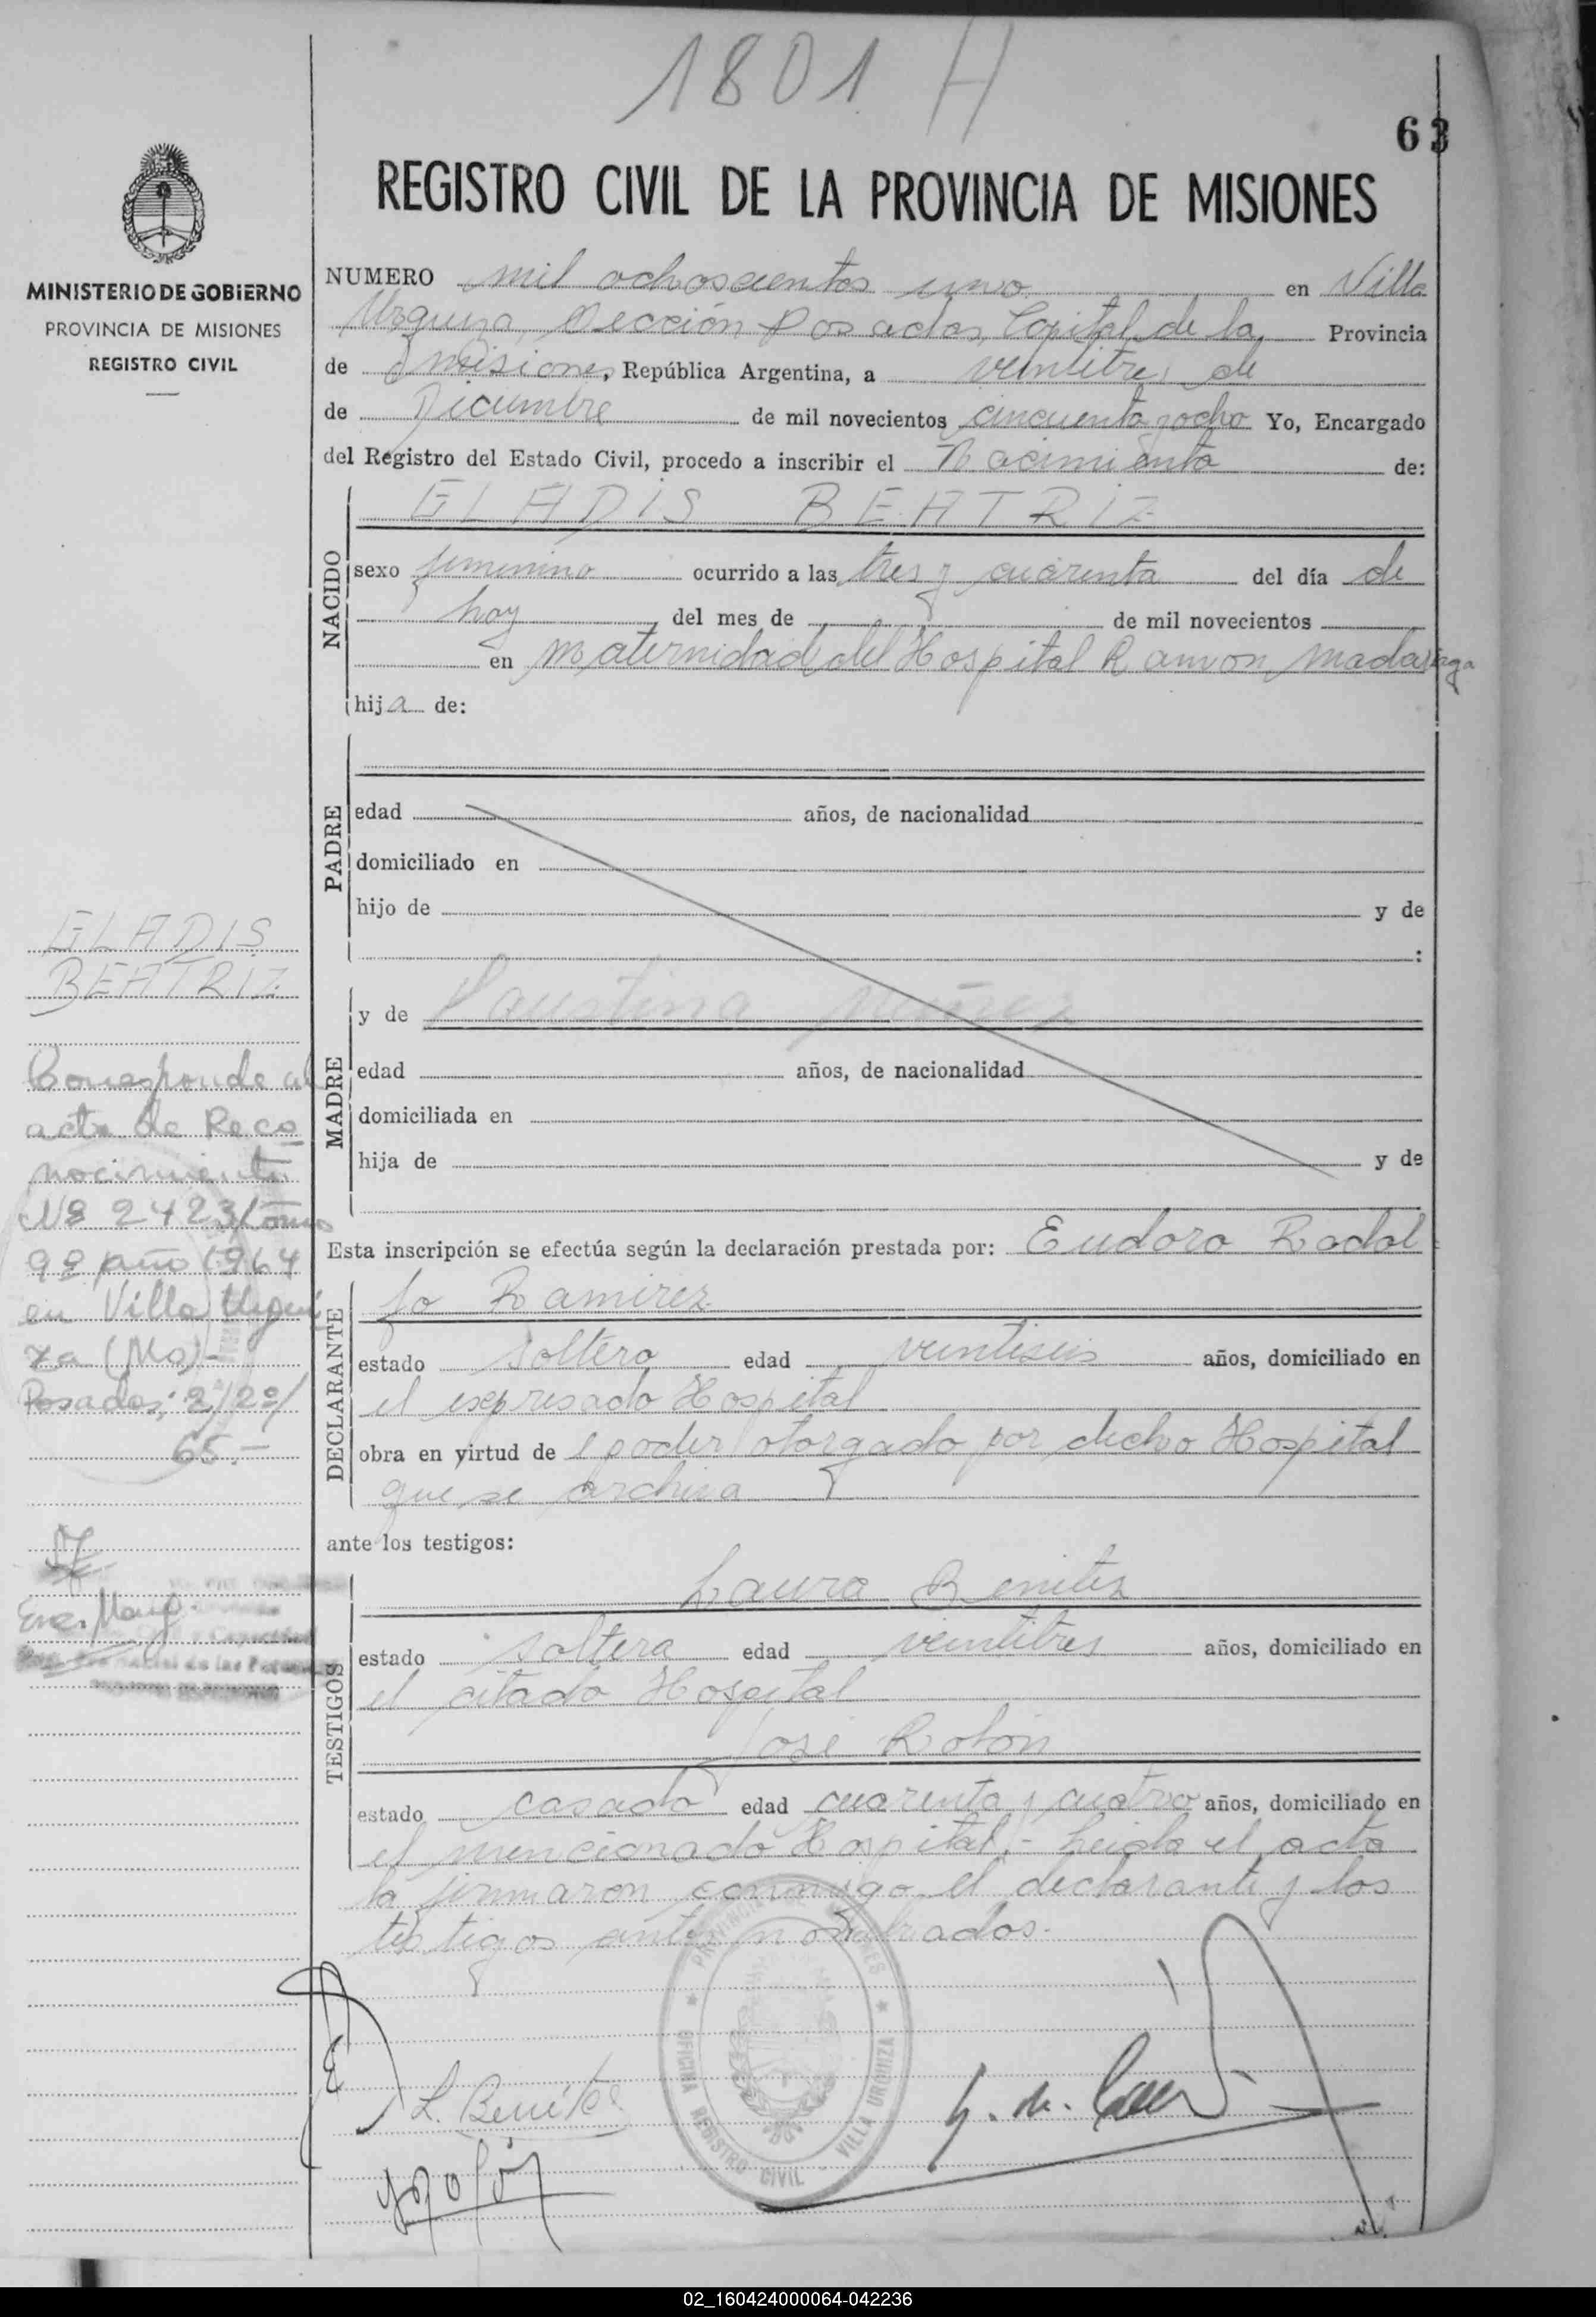 1801 H
63
MINISTERIO DE GOBIERNO
PROVINCIA DE MISIONES
REGISTRO CIVIL
REGISTRO CIVIL DE LA PROVINCIA DE MISIONES
NUMERO mil ochoscientos uno en Villa
Urquiza, Sección Posadas, Capital de la Provincia
de Misiones, República Argentina, a veintitres de
de Diciembre de mil novecientos cincuenta y ocho Yo, Encargado
del Registro del Estado Civil, procedo a inscribir el Nacimiento de:
NACIDO
GLADIS BEATRIZ
sexo femenino ocurrido a las tres y cuarenta del día de
hoy del mes de de mil novecientos
en maternidad del Hospital Ramon Madariaga
hija de:
PADRE
edad años, de nacionalidad
domiciliado en
hijo de y de
:
MADRE
y de Faustina
edad años, de nacionalidad
domiciliada en
hija de y de
Esta inscripción se efectúa según la declaración prestada por: Eudoro Rodol
fo Ramirez
DECLARANTE
estado soltero edad veintiseis años, domiciliado en
el expresado Hospital
obra en virtud de poder otorgado por dicho Hospital
que se archiva
ante los testigos:
TESTIGOS
Laura Benitez
estado soltera edad veintitres años, domiciliado en
el citado Hospital
José Rolón
estado casado edad cuarenta y cuatro años, domiciliado en
el mencionado Hospital.- Leida el acta
la firmaron conmigo el declarante y los
testigos antes nombrados.-
GLADIS
BEATRIZ
Corresponde al
acta de Reco
nocimiento
Nº 2423/tomo
9º año 1964
en Villa Urqui
za (Ms)-
Posadas; 2/2º/
65.-
L. Benítez
PROVINCIA DE MISIONES
OFICINA REGISTRO CIVIL VILLA URQUIZA
02_160424000064-042236